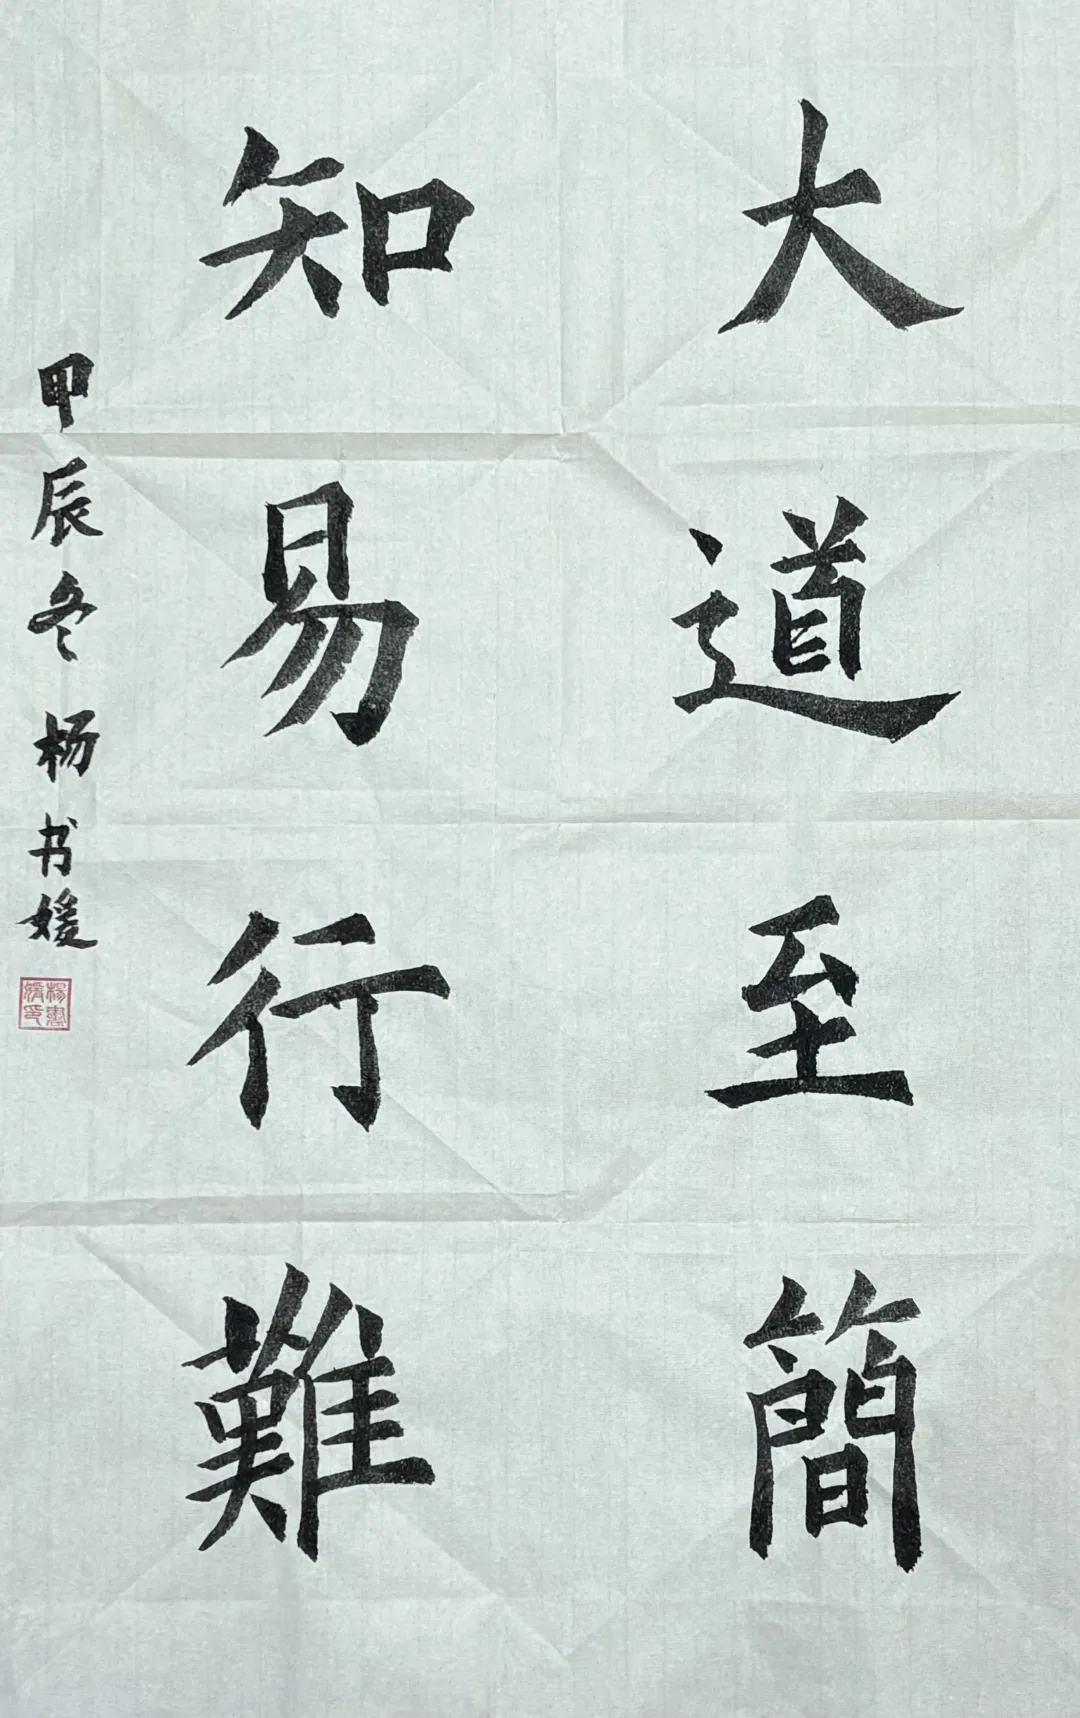 大道至簡
知易行難
甲辰冬 杨书媛